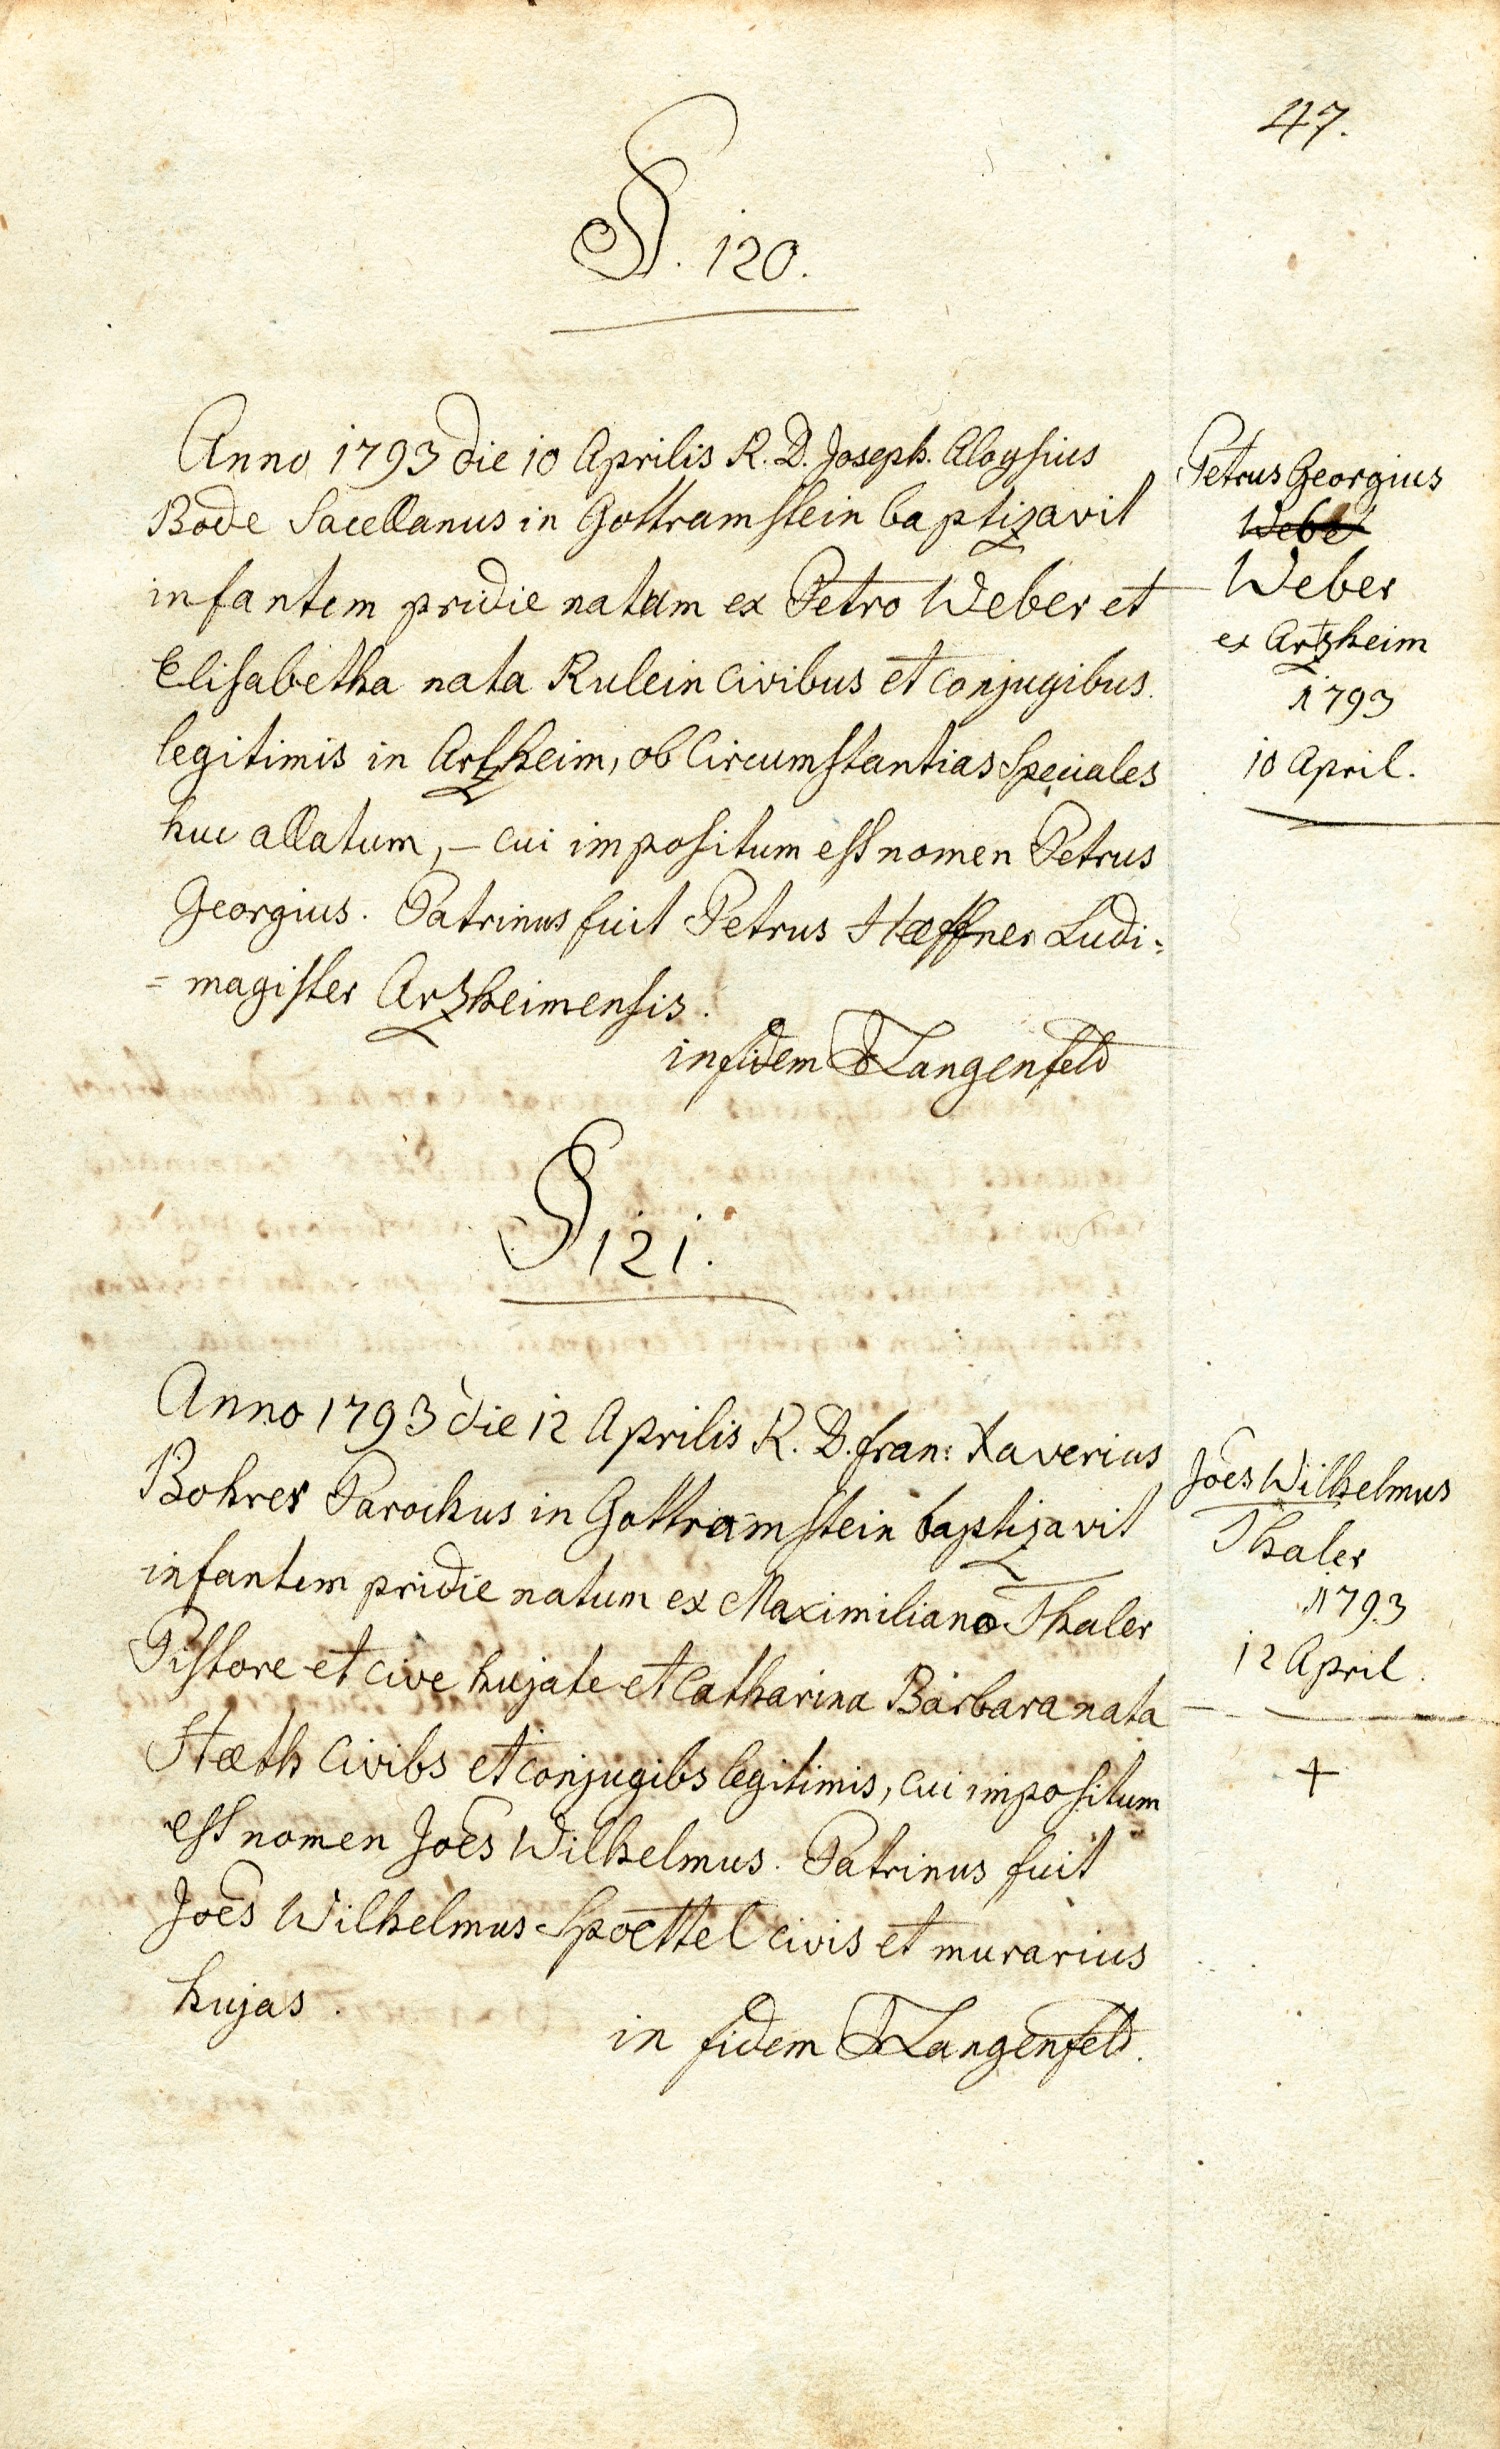 47.
§. 120.
Anno 1793 die 10 Aprilis R. D. Joseph. Aloysius
Bode Sacellanus in Gottramstein baptizavit
infantem pridie natum ex Petro Weber et
Elisabetha nata Rulein civibus et conjugibus
legitimis in Artzheim, ob Circumstantias Speciales
huc allatum, – cui impositum est nomen Petrus
Georgius. Patrinus fuit Petrus Hæffner Ludi=
=magister Arzheimensis.
in fidem Langenfeld
Petrus Georgius
Weber
Weber
ex Artzheim
1793
10 April.
§ 121.
Anno 1793 die 12 Aprilis R. D. fran: Xaverius
Bohrer Parochus in Gottramstein baptizavit
infantem pridie natum ex Maximiliano Thaler
Pistore et cive hujate et Catharina Barbara nata
Hæth Civibs et conjugibs legitimis, cui impositum
est nomen Joes Wilhelmus. Patrinus fuit
Joes Wilhelmus Spoettel civis et murarius
hujas.
in fidem Langenfeld.
Joes Wilhelmus
Thaler
1793
12 April.
+